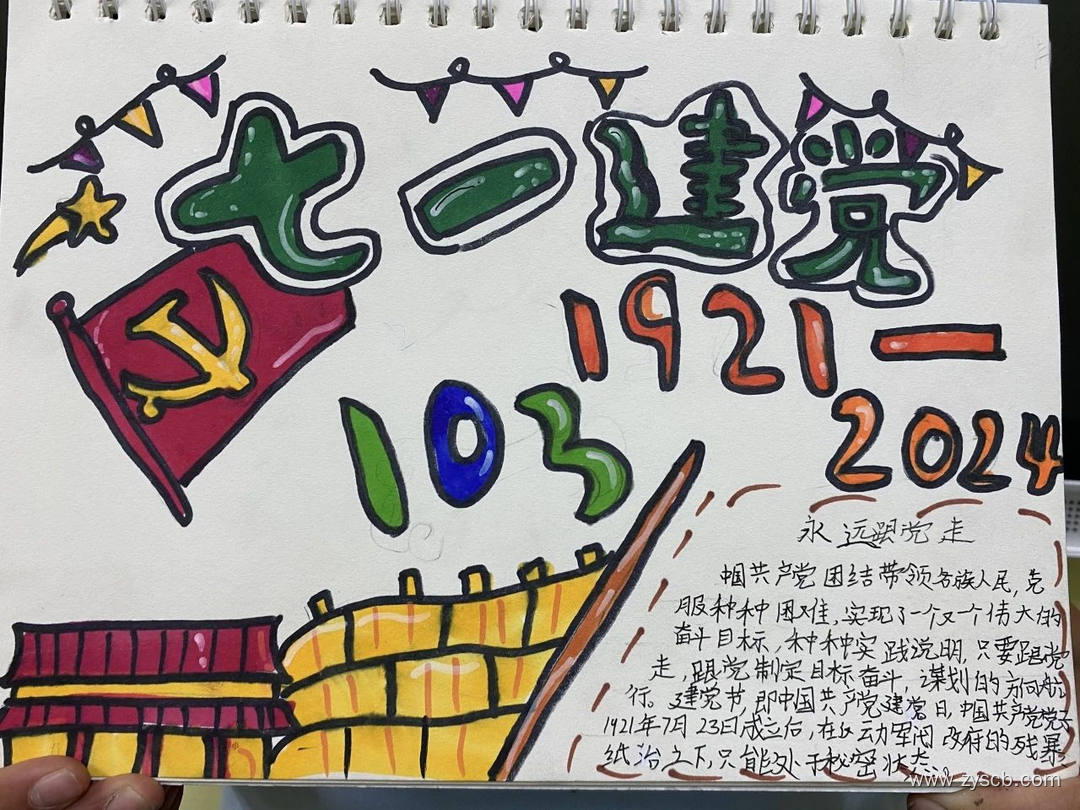 七一建党
1921—
2024
103
永远跟党走
中国共产党团结带领各族人民,克
服种种困难,实现了一个又一个伟大的
奋斗目标,种种实践说明,只要跟党
走,跟党制定目标奋斗,谋划的方向航
行。建党节,即中国共产党建党日,中国共产党党于
1921年7月23日成立后,在反动军阀政府的残暴
统治之下,只能处于秘密状态。
www.zyscb.com